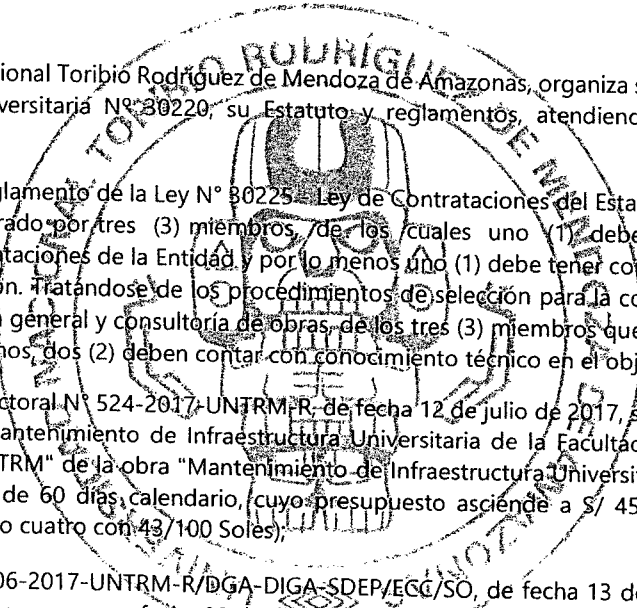 ional Toribio Rodríguez de Mendoza de Amazonas, organiza s
versitaria Nº 30220, su Estatuto y reglamentos, atendienc
glamento de la Ley N° 30225 - Ley de Contrataciones del Esta
rado por tres (3) miembros, de los cuales uno (1) debe
ataciones de la Entidad y por lo menos uno (1) debe tener co
ón. Tratándose de los procedimientos de selección para la co
general y consultoría de obras, de los tres (3) miembros que
nos, dos (2) deben contar con conocimiento técnico en el obj
ctoral N° 524-2017-UNTRM-R, de fecha 12 de julio de 2017,
antenimiento de Infraestructura Universitaria de la Facultad
TRM" de la obra "Mantenimiento de Infraestructura Universit
de 60 días calendario, cuyo presupuesto asciende a S/ 45
o cuatro con 43/100 Soles);
06-2017-UNTRM-R/DGA-DIGA-SDEP/ECC/SO, de fecha 13 d
TORIBIO RODRÍGUEZ DE MENDOZA DE AMAZONAS